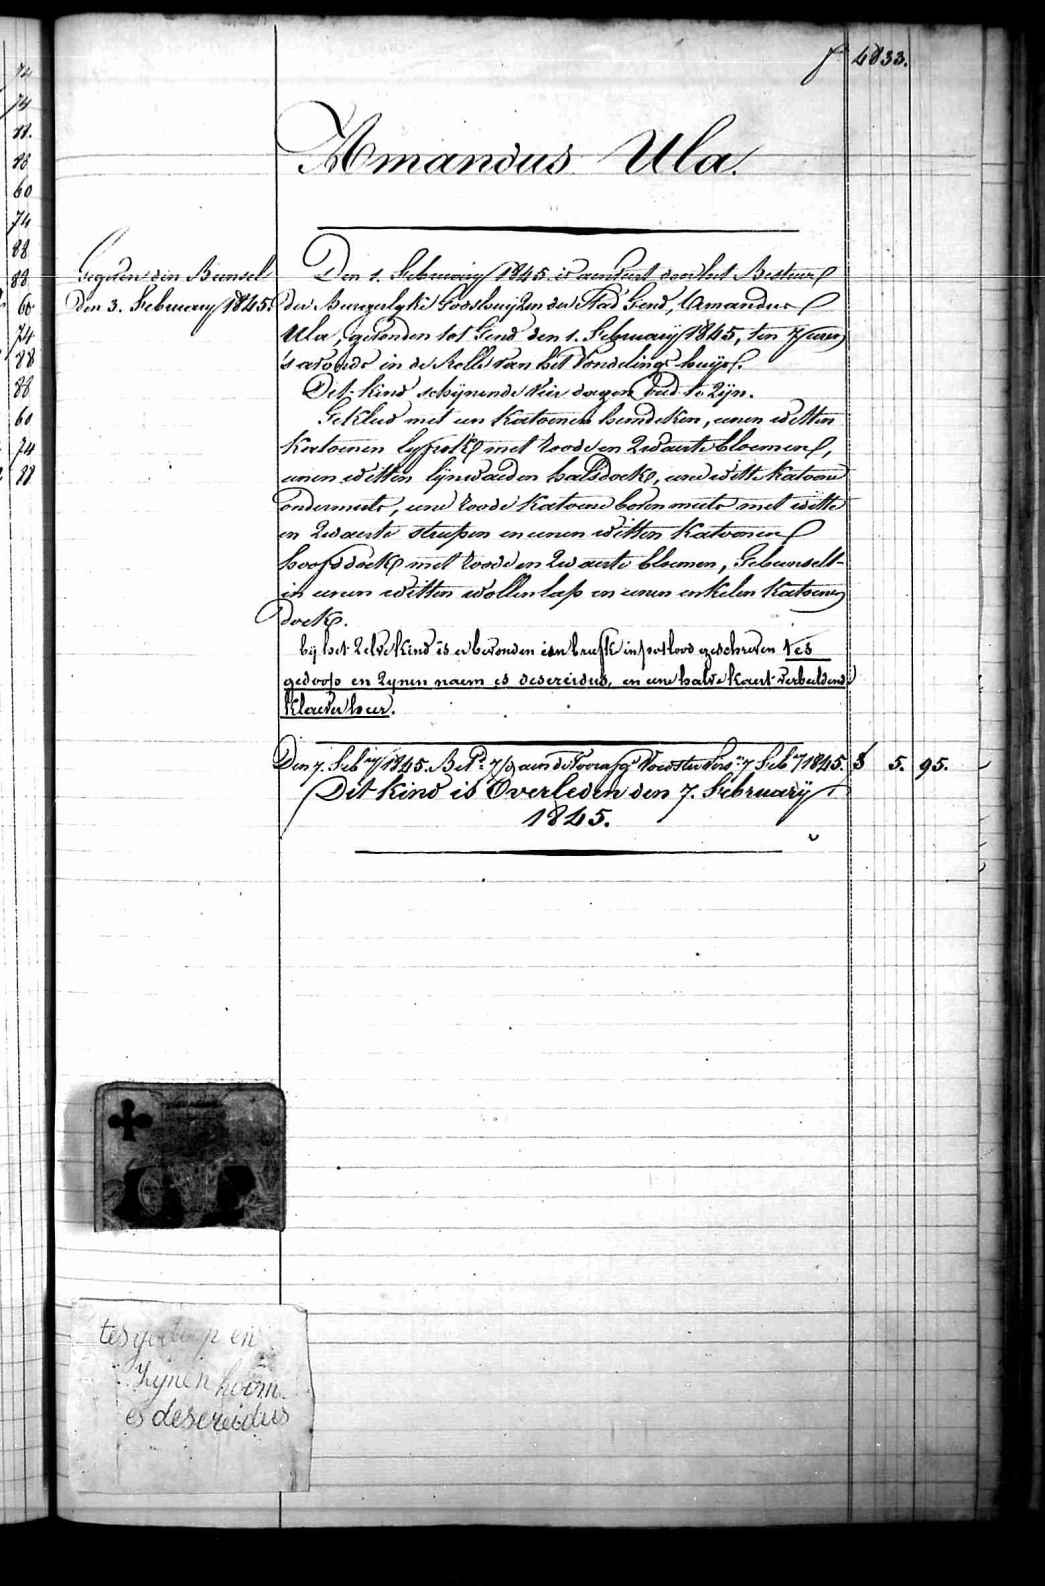 f 4833.
Amandus Ula.
Gegeven den Bunsel
den 3. February 1845.
Den 1. February 1845. is aenveert door het Bestuur
der Burgerlyke Godshuyzen der Stad Gend, Amandus
Ula, gevonden tot Gend den 1. February 1845, ten 7 uren
's avonds in de Rolle van het Vondelings huys.
Dit kind schynende vier dagen oud te zyn.
Gekleed met een katoenen hemdeken, eenen witten
katoenen lyfrok met roode en zwaerte bloemen,
eenen witten lynwaeden halsdoek, eene witte katoene
ondermuts, eene roode katoene bovenmuts met witte
en zwaerte streepen en eenen witten katoenen
hoofddoek met roode en zwaerte bloemen, Gebunselt
in eenen witten wollen lap en eenen enkelen katoenen
doek.
by het zelve kind is er bevonden een briefk in potlood geschreven tes
gedoop en zynen naem es desereidus, en eene halve kaert verbeldende
klaever heer.
Den 7. Feb.ry 1845. Bet.d aen de Voorsten 7 Feb.ry 1845. 5. 95.
Dit kind is Overleden den 7. February
1845.
tes gedoop en
Zynen hoom
es desereidus
74
74
88.
88
60
74
88
88
60
74
88
88
60
74
88